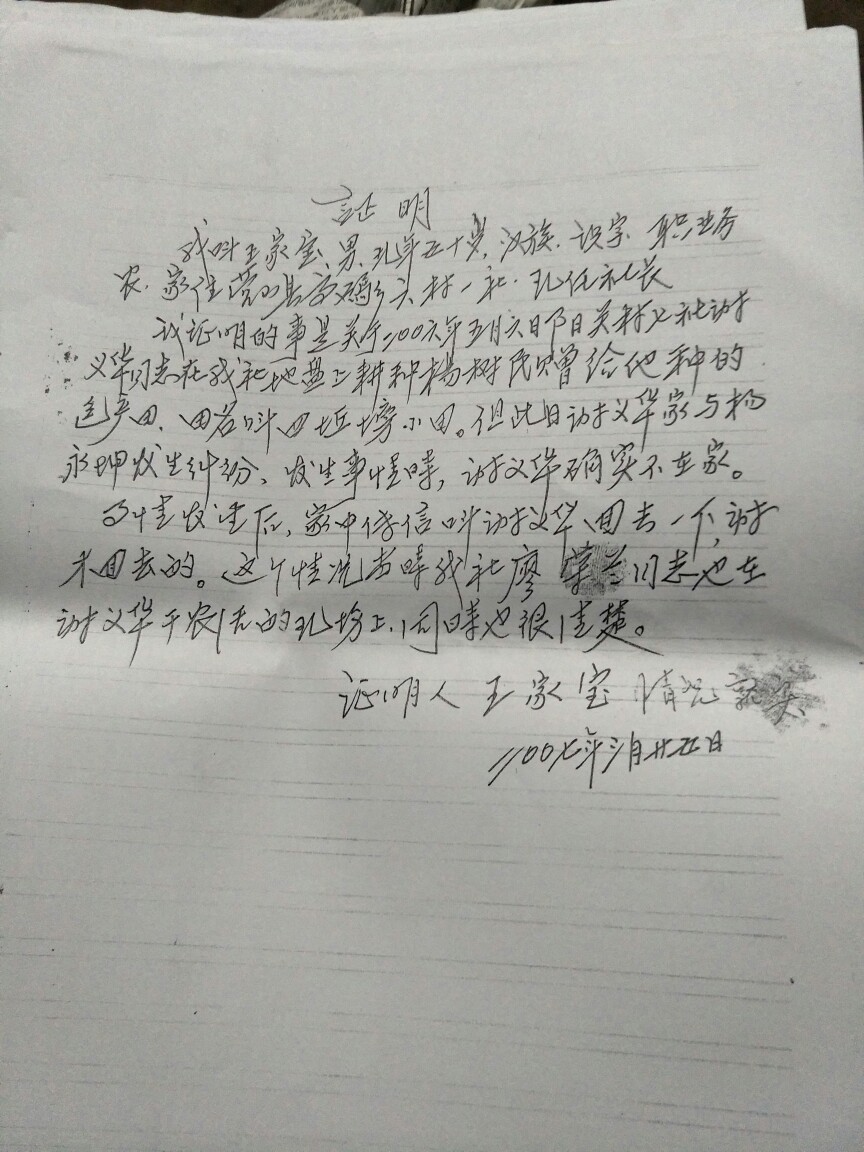 证明
我叫王家宝、男、现年五十岁,汉族、识字、职业务
农、家住营山县 六村一社、现任社长
我证明的事是关于二00六年五月六日节日关村义社谢
义华同志在我社地盘上耕种杨树民赠给他种的
包产田、田名叫四 塝小田。但此日谢义华家与杨
永坤发生纠纷、发生事情时,谢义华确实不在家。
事情发生后,家中传信叫谢义华回去一下,谢
未回去的。这个情况当时我社廖荣兰同志也在
谢义华干农活的现场上,同时也很清楚。
证明人 王家宝 情况 实
二00七年三月廿五日